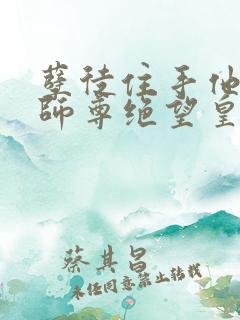 孽徒住手他
师尊绝望皇
蔡其昌
未经同意禁止转载